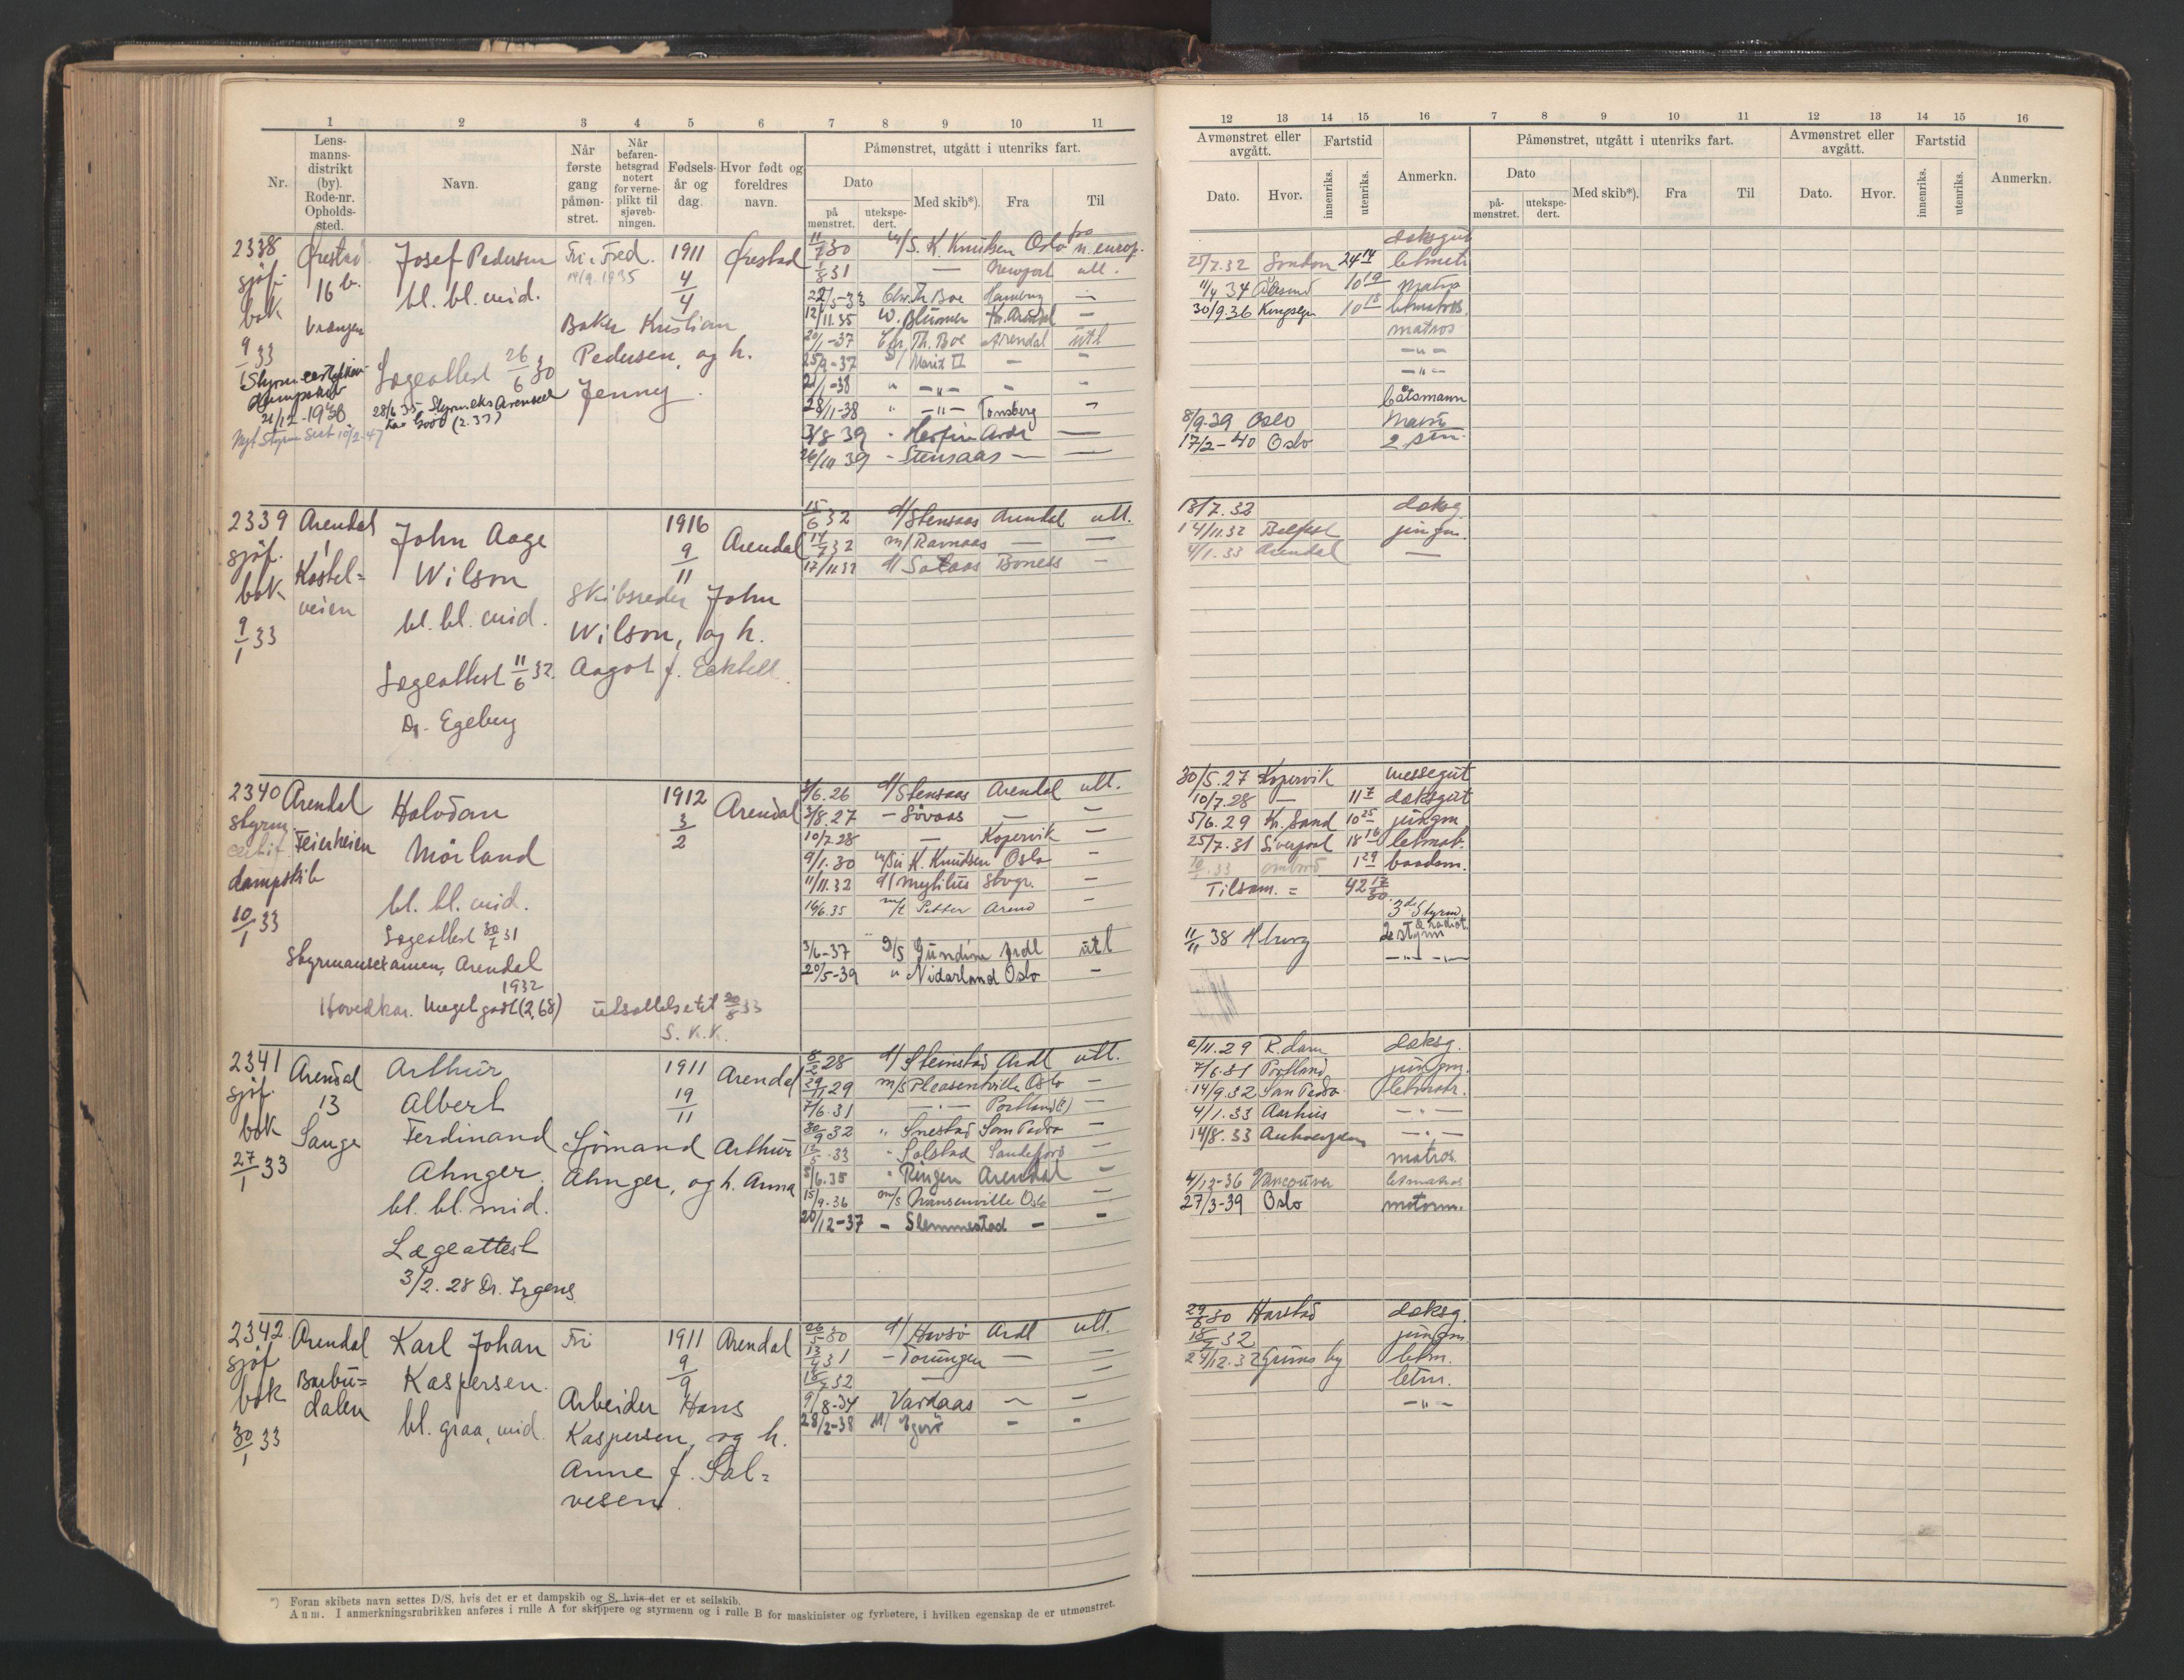 1 2 3 4 5 6 7 8 9 10 11
Nr.
Lens-
manns-
distrikt
(by).
Rode-nr.
Opholds-
sted.
Navn.
Når
første
gang
påmøn-
stret.
Når
befaren-
hetsgrad
notert
for verne-
plikt til
sjøveb-
ningen.
Fødsels-
år og
dag.
Hvor født og
foreldres
navn.
Påmønstret, utgått i utenriks fart.
Dato
på
mønstret.
utekspe-
dert.
Med skib*).
Fra
Til
2338
sjøf.
bok
9/1 33
16 b.
Josef Pedersen
bl. bl. mid.
Fri. Fred.
14/9 1935
1911
4/4
Baker Kristian
Pedersen, og h.
Jenny.
Lægeattest 26/6 30
21/12-1938
K. Knudsen Oslo
8/31 — Newport utl.
22/5-33 Chr. Th. Boe Hamburg —
12/11.35
20/1-37 Chr. Th. Boe Arendal utl
25/9-37 Marit II — —
21/1-38 " —"— - -
28/11-38 " —"— Tønsberg -
3/8 39 —
26/10 39 - Stensaas — —
2339
sjøf.
bok
9/1 33
Arendal
Kastel=
veien
John Aage
Wilson
bl. bl. mid.
Lægeattest 11/6 32.
Dr. Egeberg
1916
9/11
Arendal
Skibsreder John
Wilson, og h.
Aagot f.
15/6 32 d/ Stensaas Arendal utl.
32 m/ Ravnaas — —
17/11 32 Boness —
2340
styrm.
certif.
dampskib
10/1 33
Arendal
Feierheien
Halvdan
Mörland
bl. bl. mid.
Lægeattest 31
Styrmannsexamen, Arendal
1932
Hovedkar. Meget godt (2,68)
1912
3/2
Arendal
utsættelse til 33
S. K. K.
/6.26 d/ Stensaas Arendal utl.
3/8.27 — Sövaas — —
10/7.28 — Kopervik —
9/1.30 K. Knudsen Oslo —
11/11.32 d/ Mytilus Stvgr. —
16/6.35 m/t Petter Arend —
3/6-37 D/S Gundine Ardl utl
20/5-39 " Nidarland Oslo —
2341
sjøf.
bok
27/1 33
Arendal
13
Lange
Arthur
Albert
Ferdinand
Ahnger
bl. bl. mid.
Lægeattest
3/2. 28 Dr. Irgens
1911
19/11
Arendal
Sjömand Arthur
Ahnger, og h. Anna
8/2 28 d/ Steinstad Ardl utl.
29/11 29 m/s Pleasentville Oslo —
7/6.31 — · — Portland(?) —
30/9 32 " Snestad San Pedro —
33 " Solstad Sandefjord —
/6.35 " Ringen Arendal —
15/9-36 m/s Oslo —
20/12-37 - Slemmestad — -
2342
sjøf
bok
30/1 33
Arendal
Barbu=
dalen
Karl Johan
Kaspersen.
bl. graa, mid.
Fri
1911
9/9
Arendal
Arbeider Hans
Kaspersen, og h.
Anne f. Sal=
vesen.
26/5 30 d/ Havsö Ardl utl.
31 — Torungen — —
32 —
9/8-34 Vardaas — —
28/2-38 M/ - -
*) Foran skibets navn settes D/S, hvis det er et dampskib og S, hvis det er et seilskib.
Anm. I anmerkningsrubrikken anføres i rulle A for skippere og styrmenn og i rulle B for maskinister og fyrbøtere, i hvilken egenskap de er utmønstret.
12 13 14 15 16 7 8 9 10 11 12 13 14 15 16
Avmønstret eller
avgått.
Dato.
Hvor.
Fartstid
innenriks.
utenriks.
Anmerkn.
Påmønstret, utgått i utenriks fart.
Dato
på-
mønstret.
utekspe-
dert.
Med skib*).
Fra
Til
Avmønstret eller
avgått.
Dato.
Hvor.
Fartstid
innenriks.
utenriks.
Anmerkn.
dæksgut
25/7.32 London 24 14
11/4 34 Ålesund 10 19
30/9.36 10 18 letmatros.
matros
—"—
—"—
båtsmann
8/9.39 Oslo
17/2-40 Oslo
13/7.32 dæksg.
14/11.32 jungm.
4/1.33 Arendal —
30/5.27 Kopervik messegut
10/7.28 — 11 7 dæksgut
5/6.29 Kr. Sand 10 25 jungm.
25/7.31 Liverpool 18 16 letmat.
33 1 29 baadsm.
Tilsam. = 42 17/30
3de Styrm.
11/11 38 Hburg 2 styrm
—"— —"—
2/11.29 R.dam dæksg.
7/6.31 Portland jungm.
14/9.32 San Pedro letmatr.
4/1.33 Aarhus — " —
14/8.33 Antwerpen — " —
matros.
4/12-36 Vancouver letmatros
27/3-39 Oslo motorm.
29/8 30 Harstad dæksg.
32 jungm.
24/12.32 Grimsby letm.
letm.
—"—